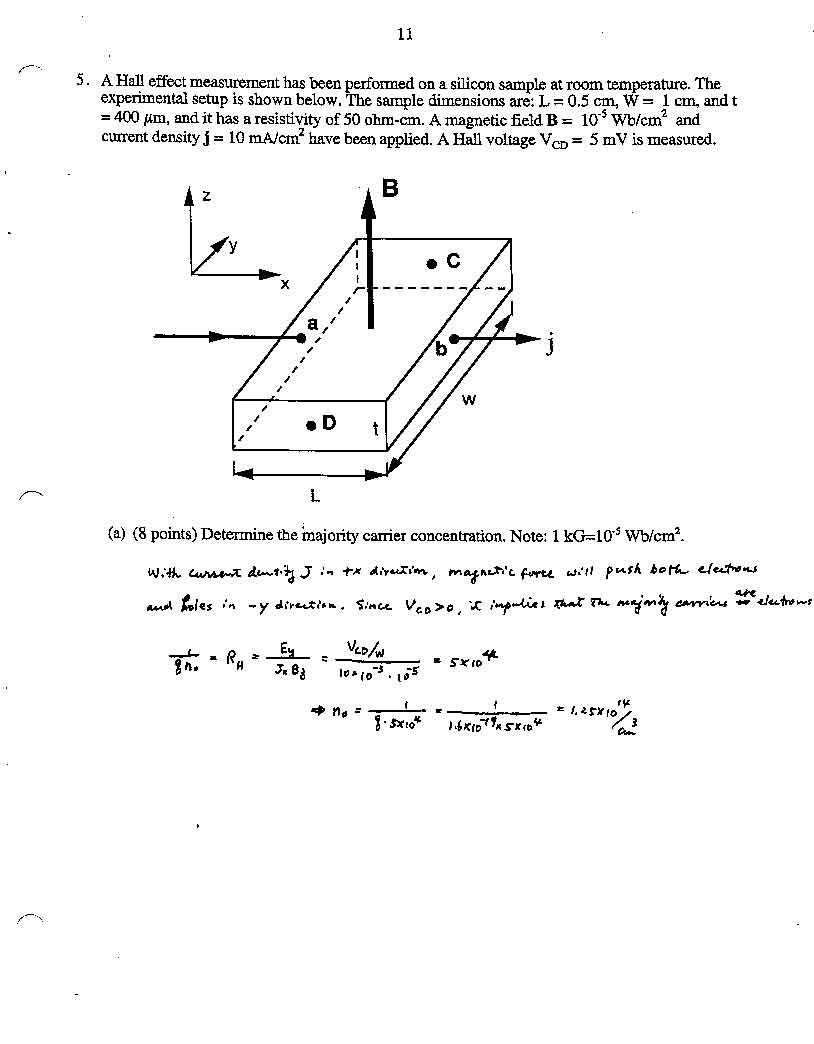 11
5. A Hall effect measurement has been performed on a silicon sample at room temperature. The
experimental setup is shown below. The sample dimensions are: L = 0.5 cm, W = 1 cm, and t
= 400 μm, and it has a resistivity of 50 ohm-cm. A magnetic field B = 10⁻⁵ Wb/cm² and
current density j = 10 mA/cm² have been applied. A Hall voltage V_CD = 5 mV is measured.
B
z
y
x
C
a
b
j
D
t
w
L
(a) (8 points) Determine the majority carrier concentration. Note: 1 kG=10⁻⁵ Wb/cm².
With current density J in +x direction, magnetic force will push both electrons
and holes in -y direction. Since V_CD > 0, it implies that the majority carriers are electrons
1/(q n₀) = R_H = E_y/(J_x B_z) = (V_CD/W)/(10×10⁻³ · 10⁻⁵) = 5×10⁴
⇒ n₀ = 1/(q · 5×10⁴) = 1/(1.6×10⁻¹⁹ × 5×10⁴) = 1.25×10¹⁴/cm³